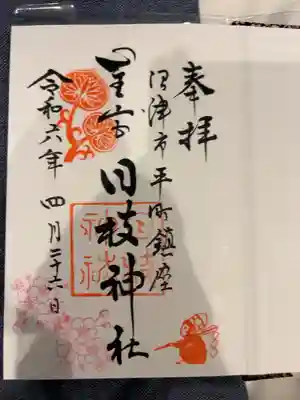 奉拝
沼津市平町鎮座
日枝神社
令和六年 四月二十六日